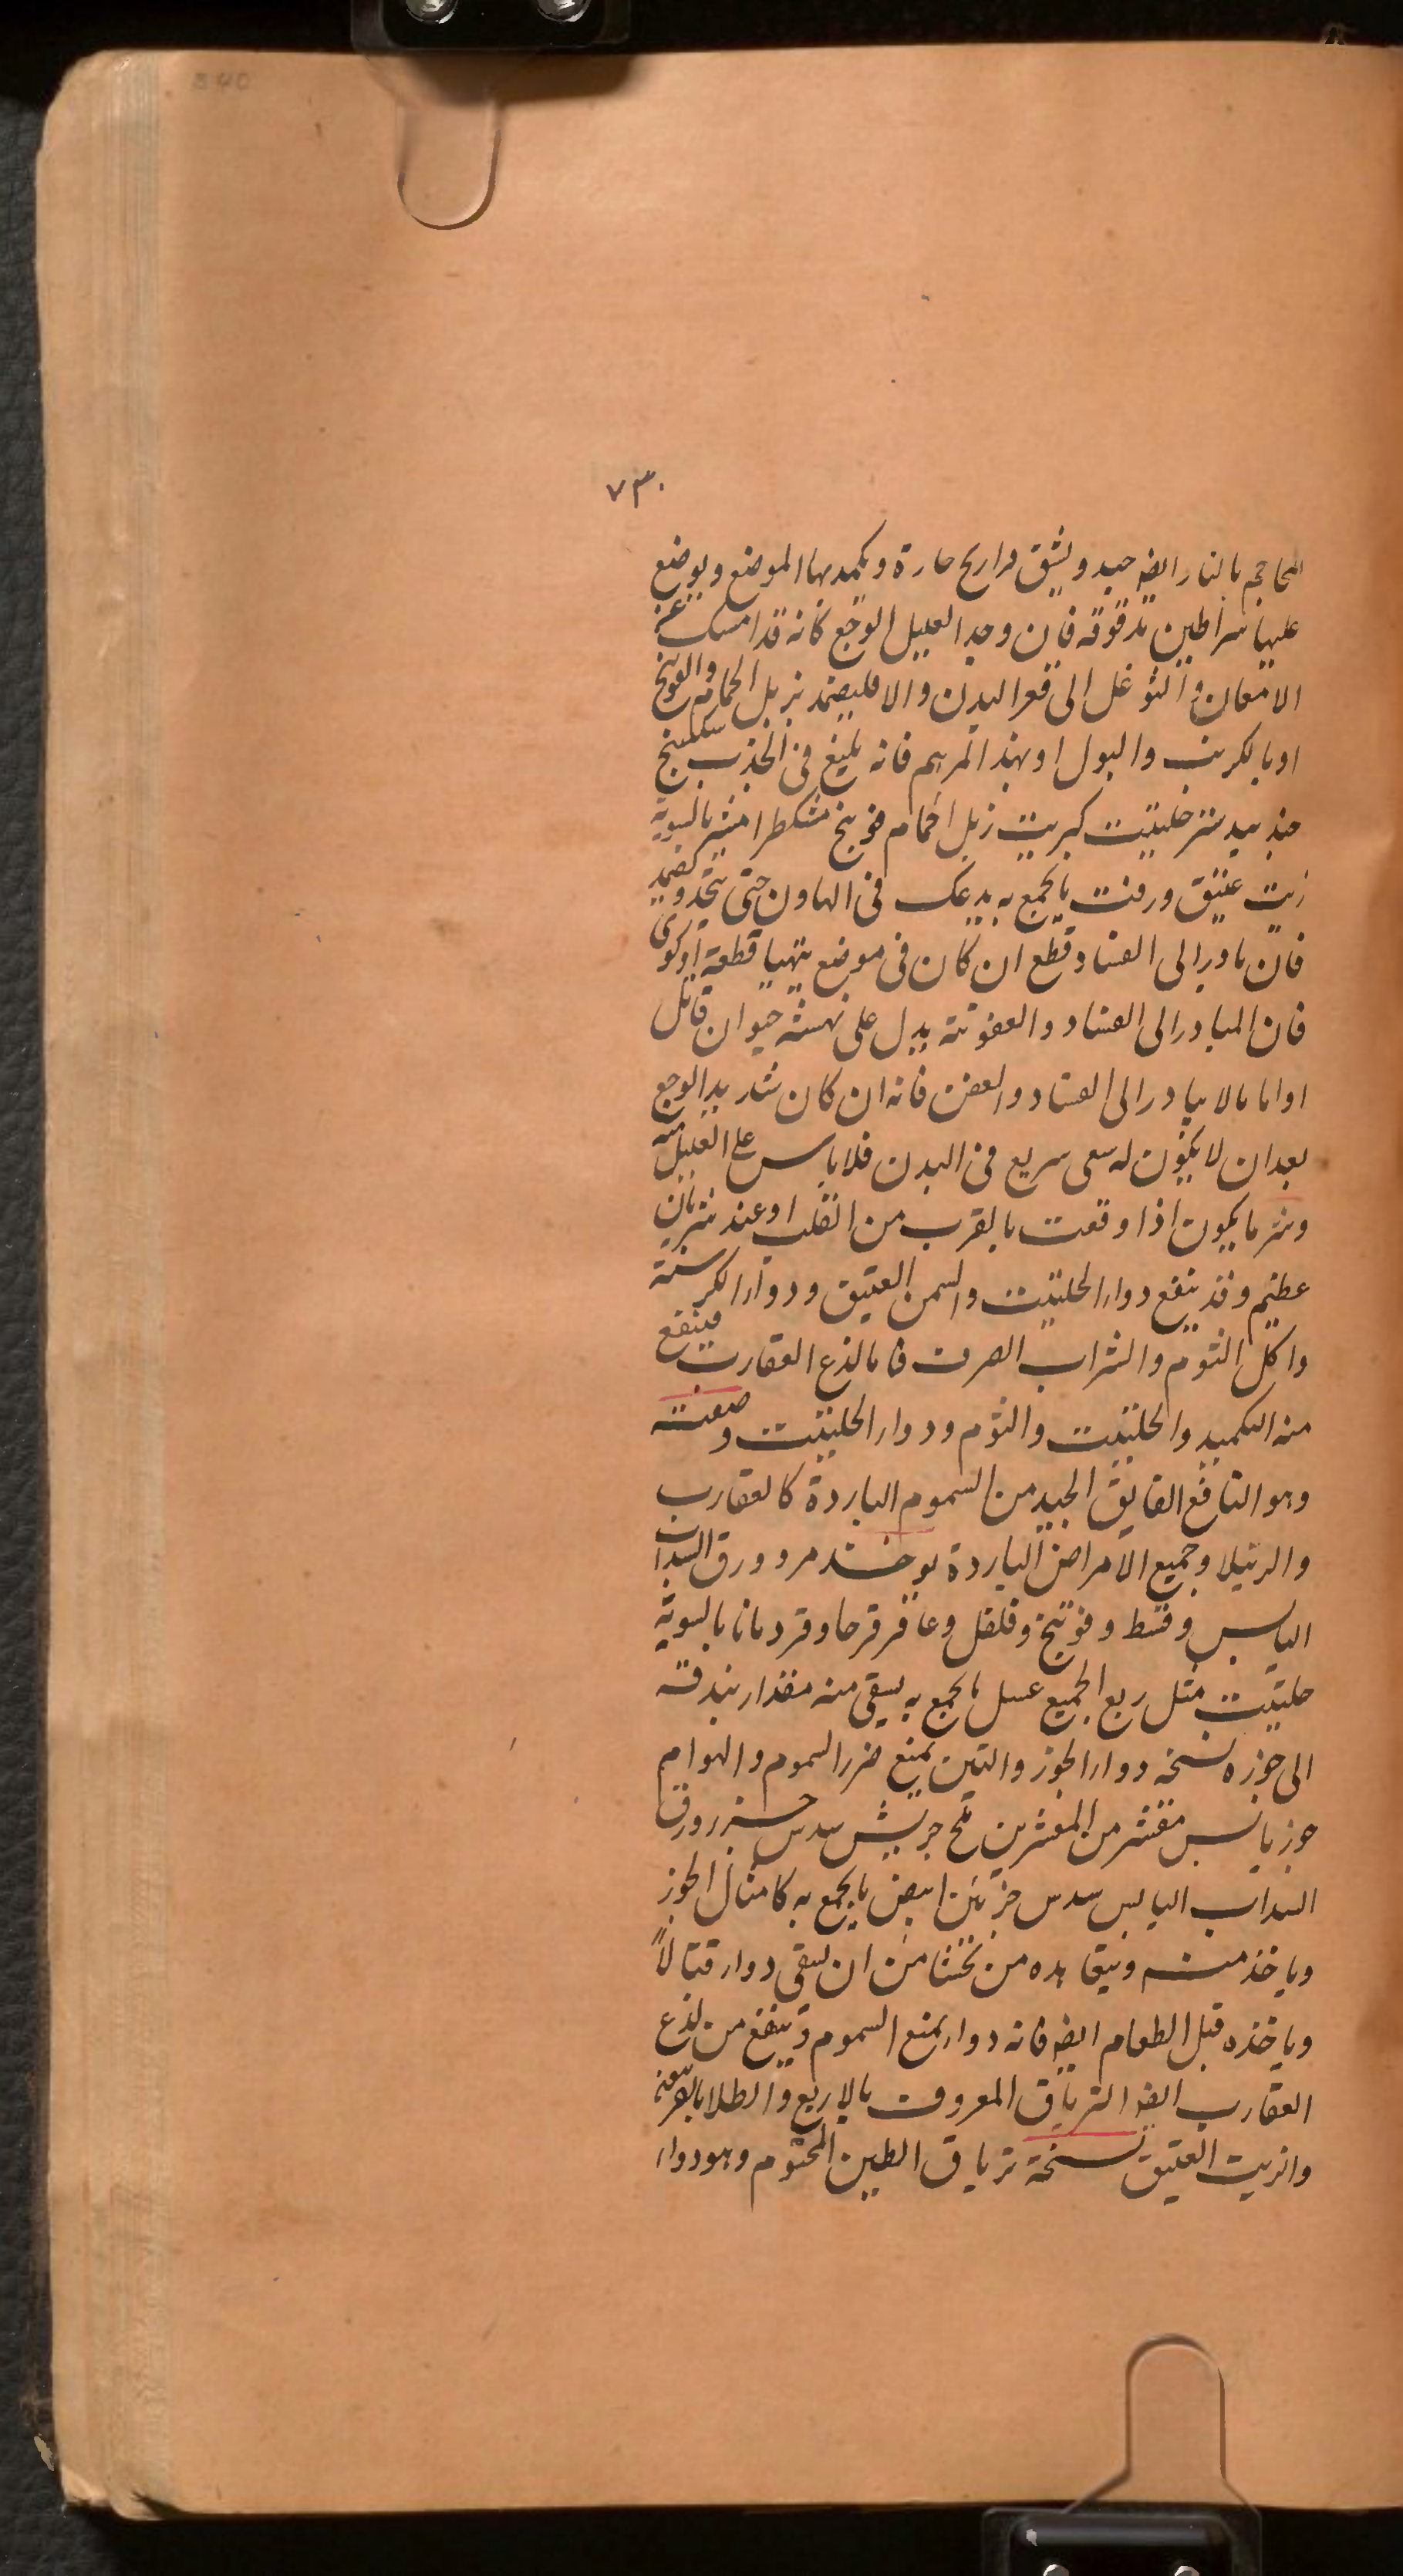 ٧٣٠
المحاجم بالنار ايضه جيد و يشق فراريح حارة و يكمد بها الموضع و يوضع
عليها سراطين مدقوقه فان وجد العليل الوجع كانه قد امسك عن
الامعان و التوغل الى قعر البدن و الا فليضمد بزبل الحمام و الفوتنج
او بالكرنب و البول او بهذا المرهم فانه بليغ فى الجذب سكبينج
جندبيدستر حلتيت كبريت زبل الحمام فوتنج مشكطرامشير بالسوية
زيت عتيق و زفت يا يجمع به يدعك فى الهاون حتى يتحد و يضمد
فان بادر الى الفساد قطع ان كان فى موضع يتهيا قطعه او كوى
فان المبادر الى الفساد و العفونة يدل على نهشه حيوان قاتل
او اما مالا يبادر الى الفساد و العفن فانه ان كان شديد الوجع
بعد ان لا يكون له سعى سريع فى البدن فلا باس على العليل منه
و شر ما يكون اذا وقعت بالقرب من القلب او عند شريان
عظيم و قد ينفع دواء الحلتيت و السمن العتيق و دواء الكرسنة
و اكل الثوم و الشراب الصرف فاما لذع العقارب فينفع
منه التكميد و الحلتيت و الثوم و دواء الحلتيت و صفته
و هو النافع الفايق الجيد من السموم الباردة كالعقارب
و الرتيلا و جميع الامراض الباردة يوخذ مر و ورق السداب
اليابس و قسط و فوتنج و فلفل و عاقر قرحا و قردمانا بالسوية
حلتيت مثل ربع الجميع عسل ما يجمع به يسقى منه مقدار بندقه
الى جوزه نسخه دواء الجوز و التين يمنع ضرر السموم و الهوام
جوز يابس مقشر من القشرين ملح جريش سدس جزر ورق
السداب اليابس سدس جز تين ابيض ما يجمع به كامثال الجوز
و ياخذ منه و يتعاهده من تخشا من ان يسقى دواء قتالاً
و ياخذه قبل الطعام ايضه فانه دواء يمنع السموم و ينفع من لذع
العقارب ايضه الترياق المعروف بالاربع و الطلا بالفربيون
و الزيت العتيق نسخة ترياق الطين المختوم و هو دواء